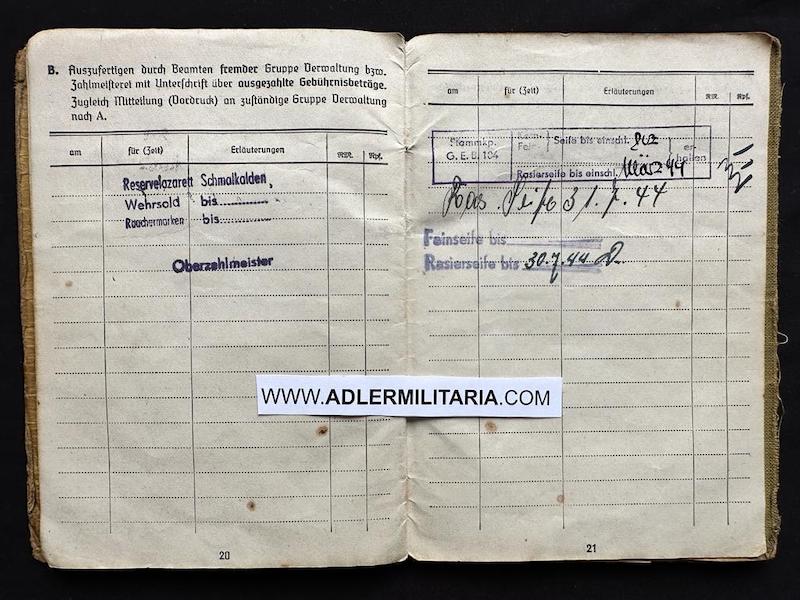 B. Auszufertigen durch Beamten fremder Gruppe Verwaltung bzw.
Zahlmeisterei mit Unterschrift über ausgezahlte Gebührnisbeträge.
Zugleich Mitteilung (Vordruck) an zuständige Gruppe Verwaltung
nach A.
am für (Zeit) Erläuterungen RM. Rpf.
Reservelazarett Schmalkalden,
Wehrsold bis
Rauchermarken bis
Oberzahlmeister
20
am für (Zeit) Erläuterungen RM. Rpf.
Stammkp.
G. E. B. 104
Seife bis einschl.
Rasierseife bis einschl. März 44
er-
halten
Ras. Seife 31.7.44
Feinseife bis
Rasierseife bis 30.7.44
21
WWW.ADLERMILITARIA.COM